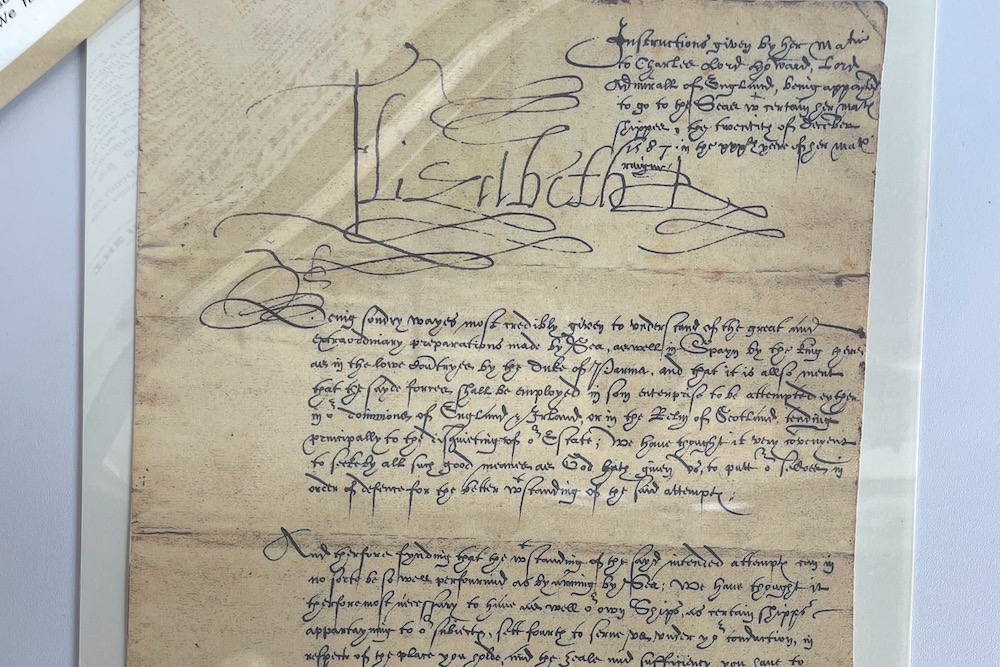 Instructions given by her Matie
to Charles Lord Howard, Lord
Admirall of England, being appoynted
to go to the Seas wt certain her Mats
shippes, the twentith of December
1587. in the xxxth yere of her Mats
raigne.
Elizabeth
Being sondry wayes most credibly given to understand of the great and
extraordinary preparations made by Sea, aswell in Spayn by the king there,
as in the lowe Countryes by the Duke of Parma, and that it is allso ment
that the sayde forces shall be employed in som enterprise to be attempted eyther
in or dominions of England & Irland, or in the Relm of Scotland, tending
principally to the disquieting of or Estate; We have thought it very convenient
to seeke by all such good meanes as God hath given us, to putt or selves in
order of defence for the better wtstanding of the said attempts;
And therfore fynding that the wtstanding of the sayd intended attempts can in
no sorte be so well perfourmid as by arming by Sea; We have thought it
therfore most necessary to have as well or own Ships, as certain shipps
appartayning to or subjects, sett fourth to serve us, under yor conduction, in
respect of the place you holde, and the zeale and sufficiency you have to